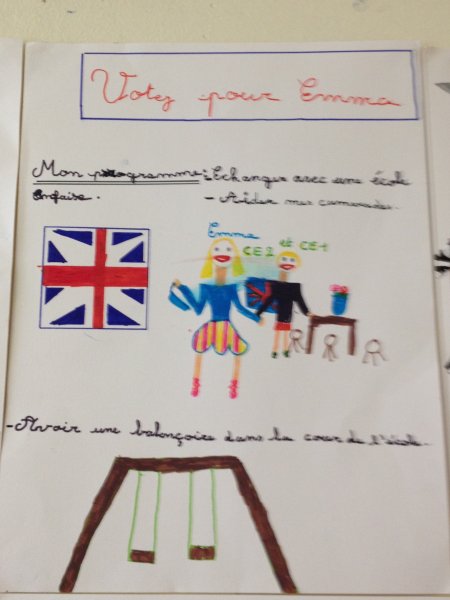 Votez pour Emma
Mon programme : Echanger avec une école
- Aider mes camarades.
Emma
CE2 et CE1
- Avoir une balançoire dans la cour de l'école.